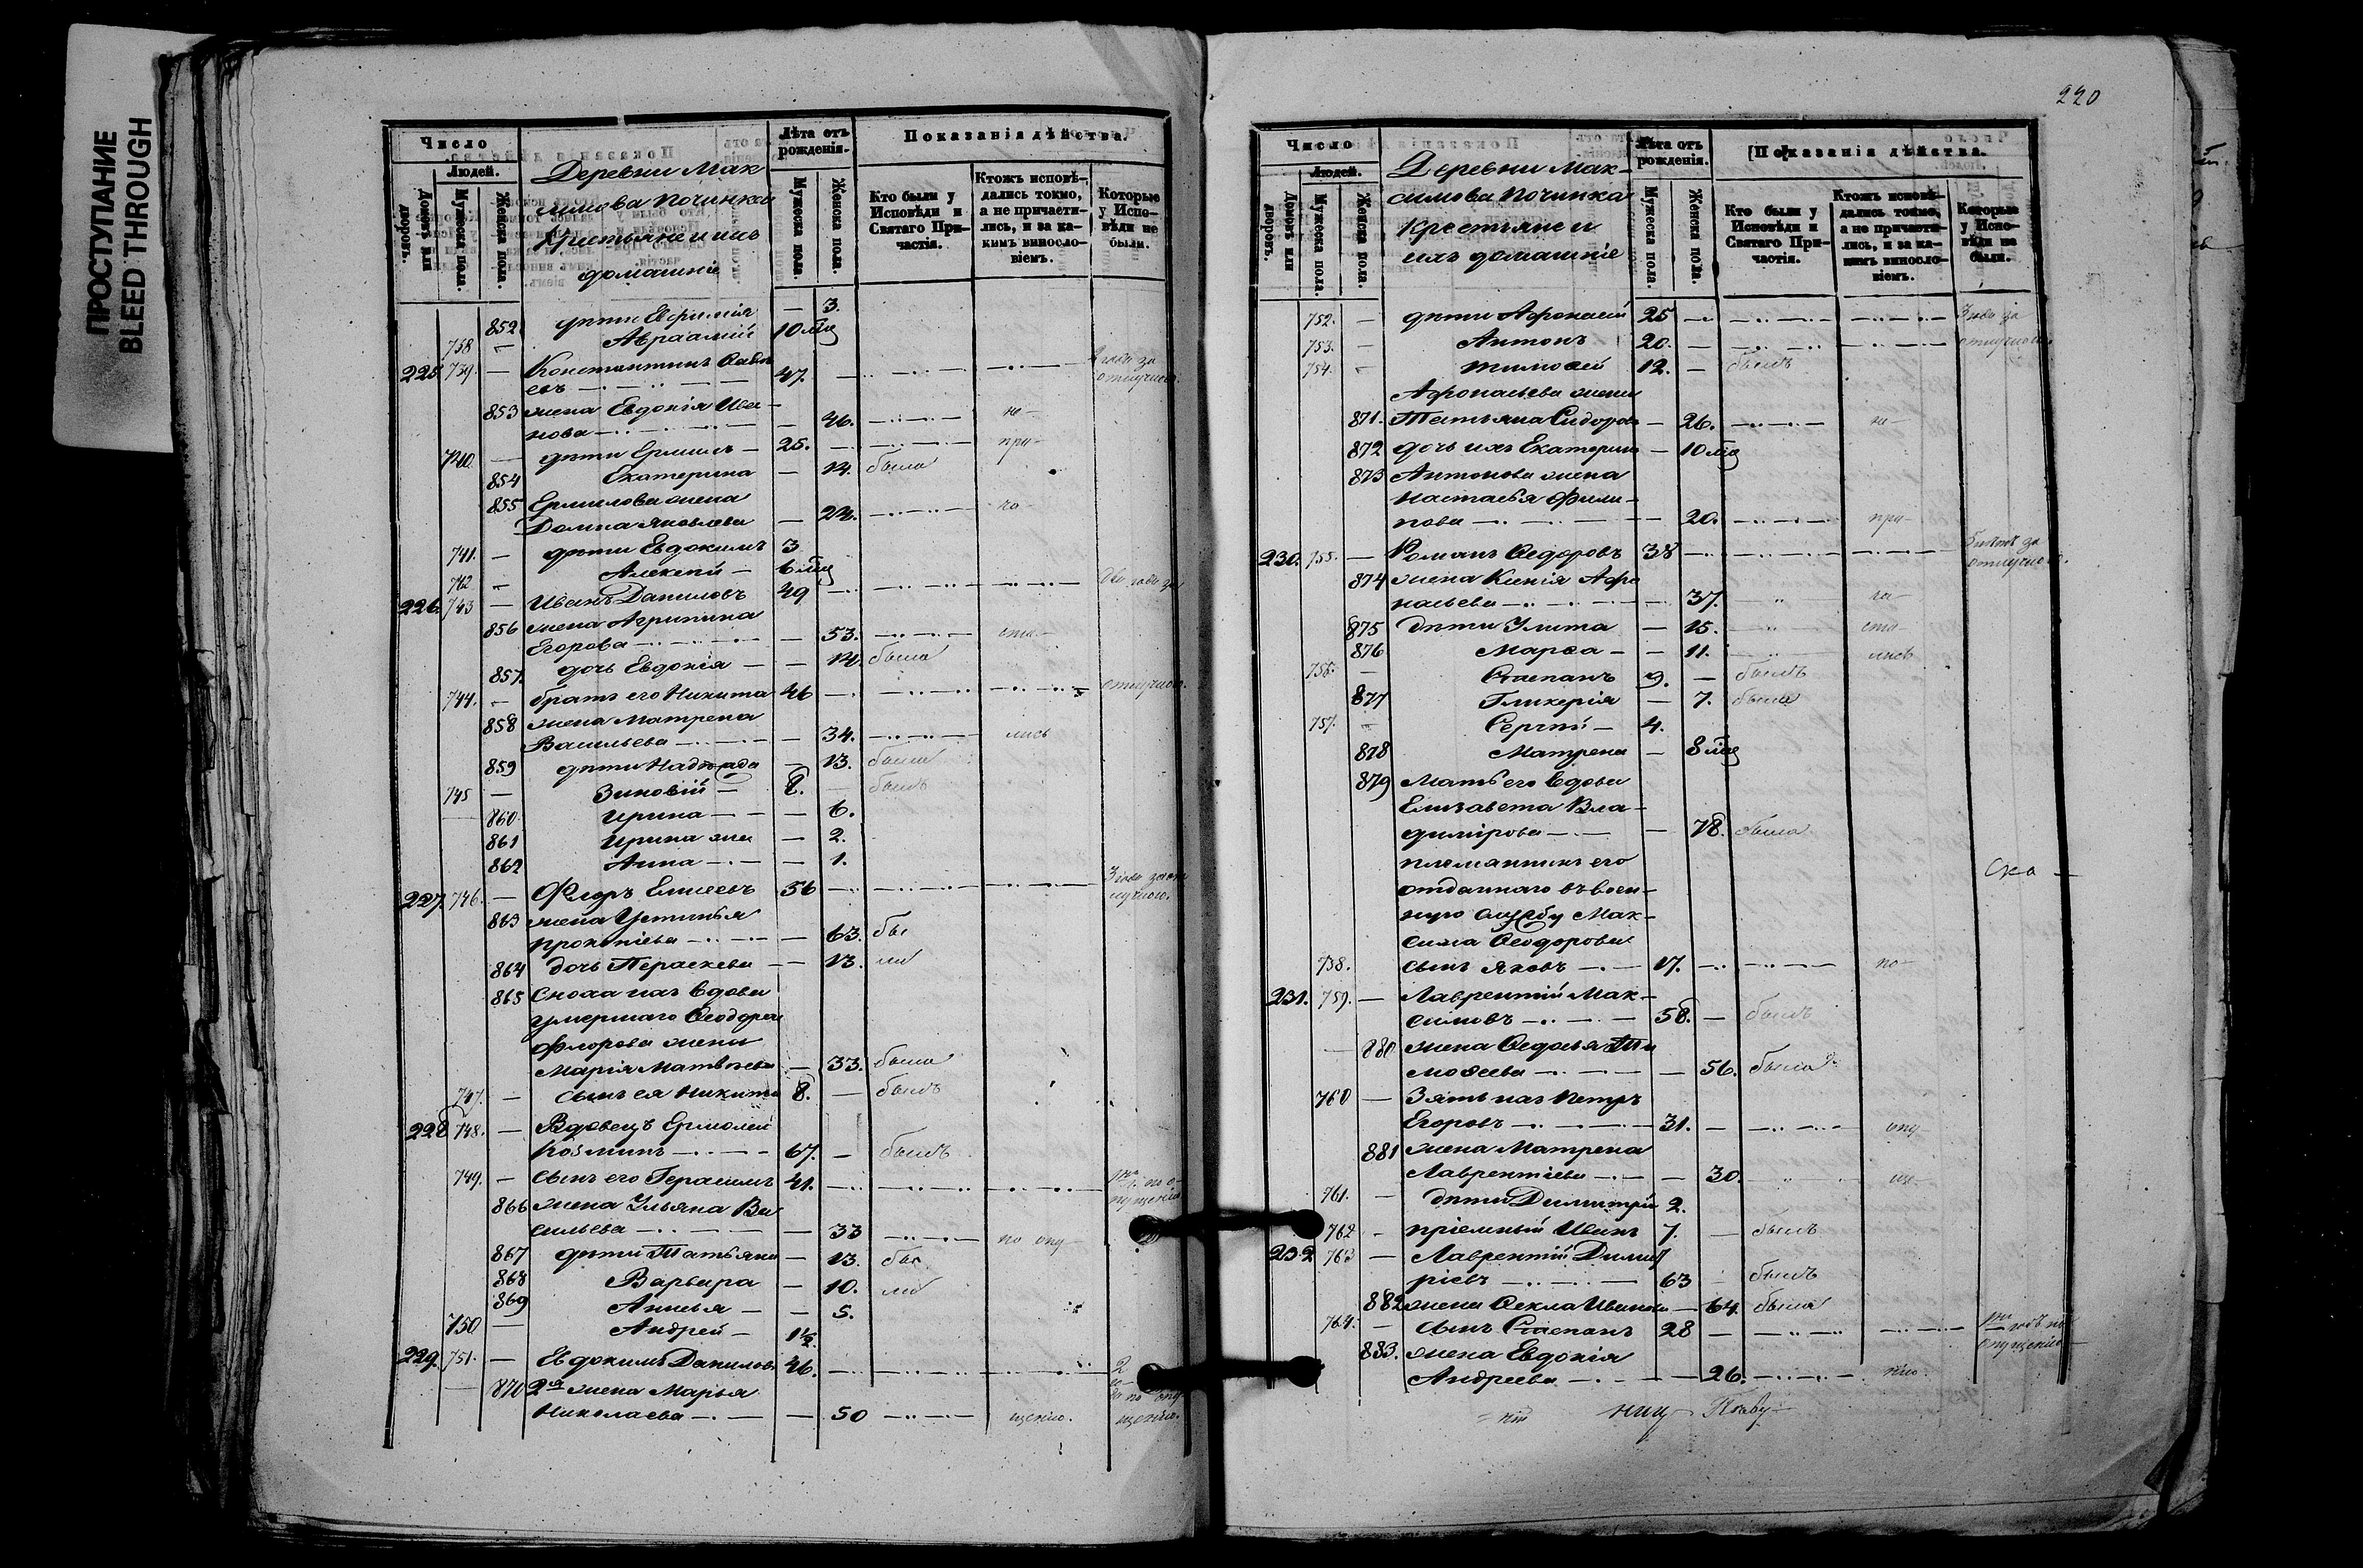 ПРОСТУПАНИЕ
BLEED THROUGH
Число
Людей.
Домовъ или дворовъ.
Мужеска пола.
Женска пола.
Деревни Мак
симова Починка
Крестьяне и ихъ
домашніе
Лѣта отъ рожденія.
Мужеска пола.
Женска пола.
Показанія дѣйства.
Кто были у Исповѣди и Святаго Причастія.
Ктожъ исповѣдались токмо, а не причастились, и за какимъ винословіемъ.
Которые у Исповѣди не были.
852 дѣти Евфимія — 3.
738 — Авраамій 10 мѣ
225 739. — Константинъ Савел
евъ 47. — отлучкою.
853 жена Евдокія Ива
нова — 46. не
740 — дѣти Ермилъ 25. — при
854 Екатерина — 14. была
855 Ермилова жена
Домна Яковлева — 24. ча
741. — дѣти Евдокимъ 3
742 — Алексѣй 6 мѣ
226. 743 — Иванъ Даниловъ 49
856 жена Агрипина
Егорова — 53. сти
857. дочь Евдокія — 14. была
744. — братъ его Никита 46 — отлучкою.
858 жена Матрена
Васильева — 34. лись
859 дѣти Надежда — 13. была
745 — Зиновій 8. — былъ
860 Ирина — 6.
861 Ирина — 2.
862 Анна — 1.
227. 746. — Флоръ Елисеевъ 56
863 жена Устинья
Прокопіева — 63. бы
864 дочь Параскева — 13. ли
865 Сноха ихъ вдова
умершаго Ѳеодора
Флорова жена
Марія Матвѣева — 33. была
747. — сынъ ея Никита 8. — былъ
228 748. — Вдовецъ Ермолай
Козминъ 67. — былъ
749. — сынъ его Герасимъ 41. — по о-
пущенію
866 жена Ульяна Ва
сильева — 33 по опу
867 дѣти Татьяна — 13. бы
868 Варвара — 10. ли
869 Анисья — 5.
750 — Андрей 1½
229. 751. — Евдокимъ Данилов 46. — 2 го-
да по опу
870 2я жена Марья
Николаева — 50 щенію. щенію.
220
Число
Людей.
Домовъ или дворовъ.
Мужеска пола.
Женска пола.
Деревни Мак-
симова Починка
Крестьяне и
ихъ домашніе
Лѣта отъ рожденія.
Мужеска пола.
Женска пола.
Показанія дѣйства.
Кто были у Исповѣди и Святаго Причастія.
Ктожъ исповѣдались токмо, а не причастились, и за какимъ винословіемъ.
Которые у Исповѣди не были.
752. — дѣти Афонасій 25 — 3 года за
753. — Антонъ 20. — отлучкою.
754. — Тимоѳей 12. — былъ
Афонасьева жена
871. Татьяна Сидоров — 26. не
872 дочь ихъ Екатерин — 10 мѣ
873 Антонова жена
Настасья Фили-
пова — 20. при
230. 755. — Романъ Ѳедоровъ 38 — за
отлучкою.
874 жена Ксенія Афо
насьева — 37. ча
875 дѣти Улита — 15. сти
876 Марѳа — 11. лись
756. — Степанъ 9. — былъ
877 Гликерія — 7. была
757. — Сергѣй 4.
878 Матрена — 8 мѣ
879 Мать его вдова
Елизавета Вла-
димірова — 78. была
племянникъ его
отданнаго въ воен-
ную службу Мак-
сима Ѳеодорова
758. сынъ Яковъ 17. по
Ска
231. 759. — Лаврентій Мак-
симовъ 58. — былъ
880 жена Ѳедосья Ти
моѳеева — 56. была
760 — Зять ихъ Петръ
Егоровъ 31. — опу
881 жена Матрена
Лаврентіева — 30. ще
761. — дѣти Димитрій 2.
762 — пріемный Иванъ 7. — былъ
232 763 — Лаврентій Димит
ріевъ 63 — былъ
882 жена Ѳекла Иванов — 64. была
764. — сынъ Степанъ 28 — по
опущенію
883. жена Евдокія
Андреева — 26. нію.